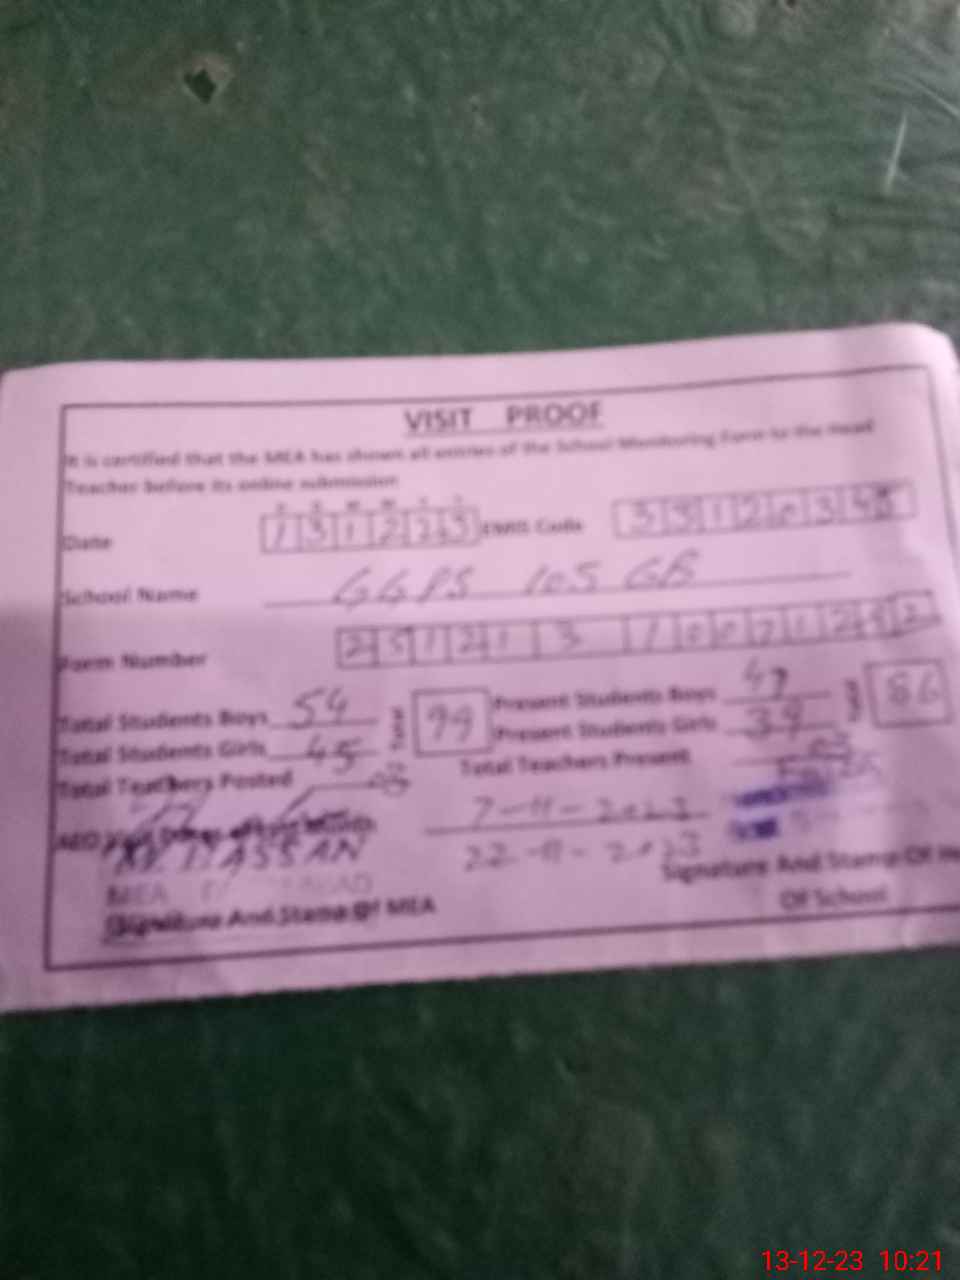 VISIT PROOF
It is certified that the MEA has shown all entries of the School Monitoring Form to the Head
Teacher before its online submission
Date 131223 EMIS Code 331203
School Name GGPS 105 GB
Form Number
Total Students Boys 54 Total 99 Present Students Boys 47 Total 86
Total Students Girls 45 Present Students Girls 39
Total Teachers Posted 03 Total Teachers Present 03
AEO Visit Dates of 7-11-2023
HASSAN 22-11-2023
MEA
Signature And Stamp Of MEA Signature And Stamp Of
Of School
13-12-23 10:21